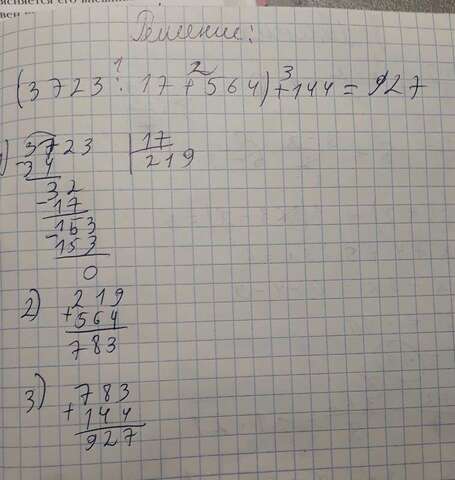 Решение:
1 2 3
(3723 : 17 + 564) + 144 = 927
1) 3723 | 17
- 34 219
32
- 17
153
- 153
0
2) 219
+ 564
783
3) 783
+ 144
927